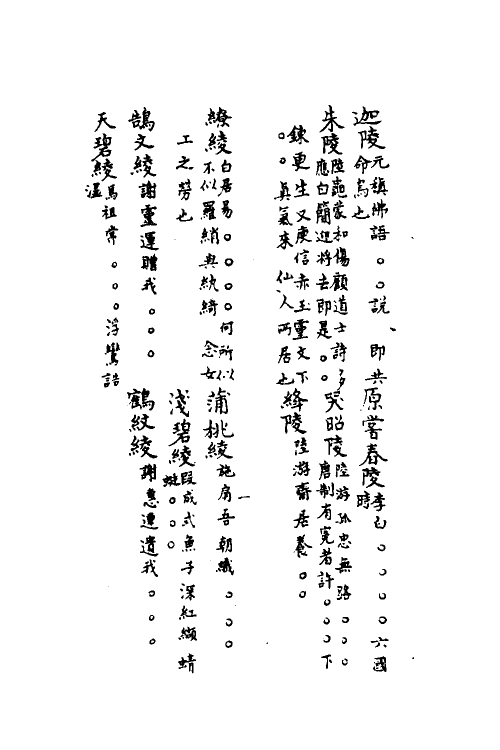 迦陵元稹佛語。。説、即共
命鳥也
原嘗春陵李白。。。。六國
時
朱陵陸龜蒙和傷顧道士詩多
應白簡迎將去即是。。
哭昭陵陸游孤忠無路。。。
唐制有寃者許。。。下
錬更生又庾信赤玉靈文下
。。真氣來仙人所居也
絳陵陸游齋居養。。
繚綾白居易。。。。何所似
不似羅綃與紈綺 念女
工之勞也
蒲桃綾施肩吾朝織。。。
淺碧綾段成式魚子深紅纈蜻
蜓。。。
鵠文綾謝靈運贈我。。。
鶴紋綾謝惠連遺我。。。
天碧綾馬祖常。。。浮鸞誥
溫